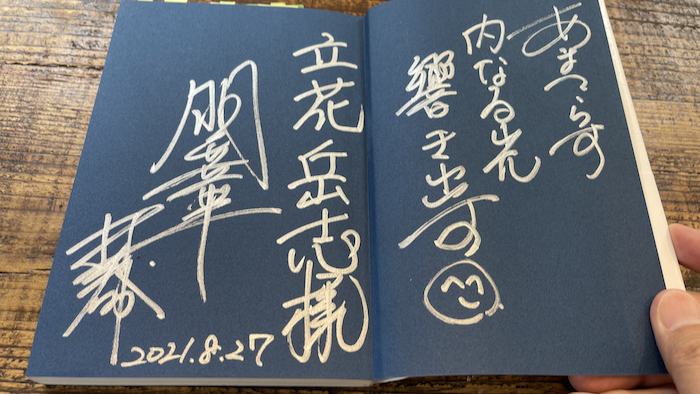 あまてらす
内なる光
響き出す
立花岳志様
2021.8.27